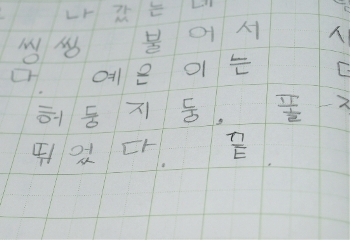 나갔는데
씽씽 불어서 시
다. 예은이는
허둥지둥. 폴
뛰었다. 끝.